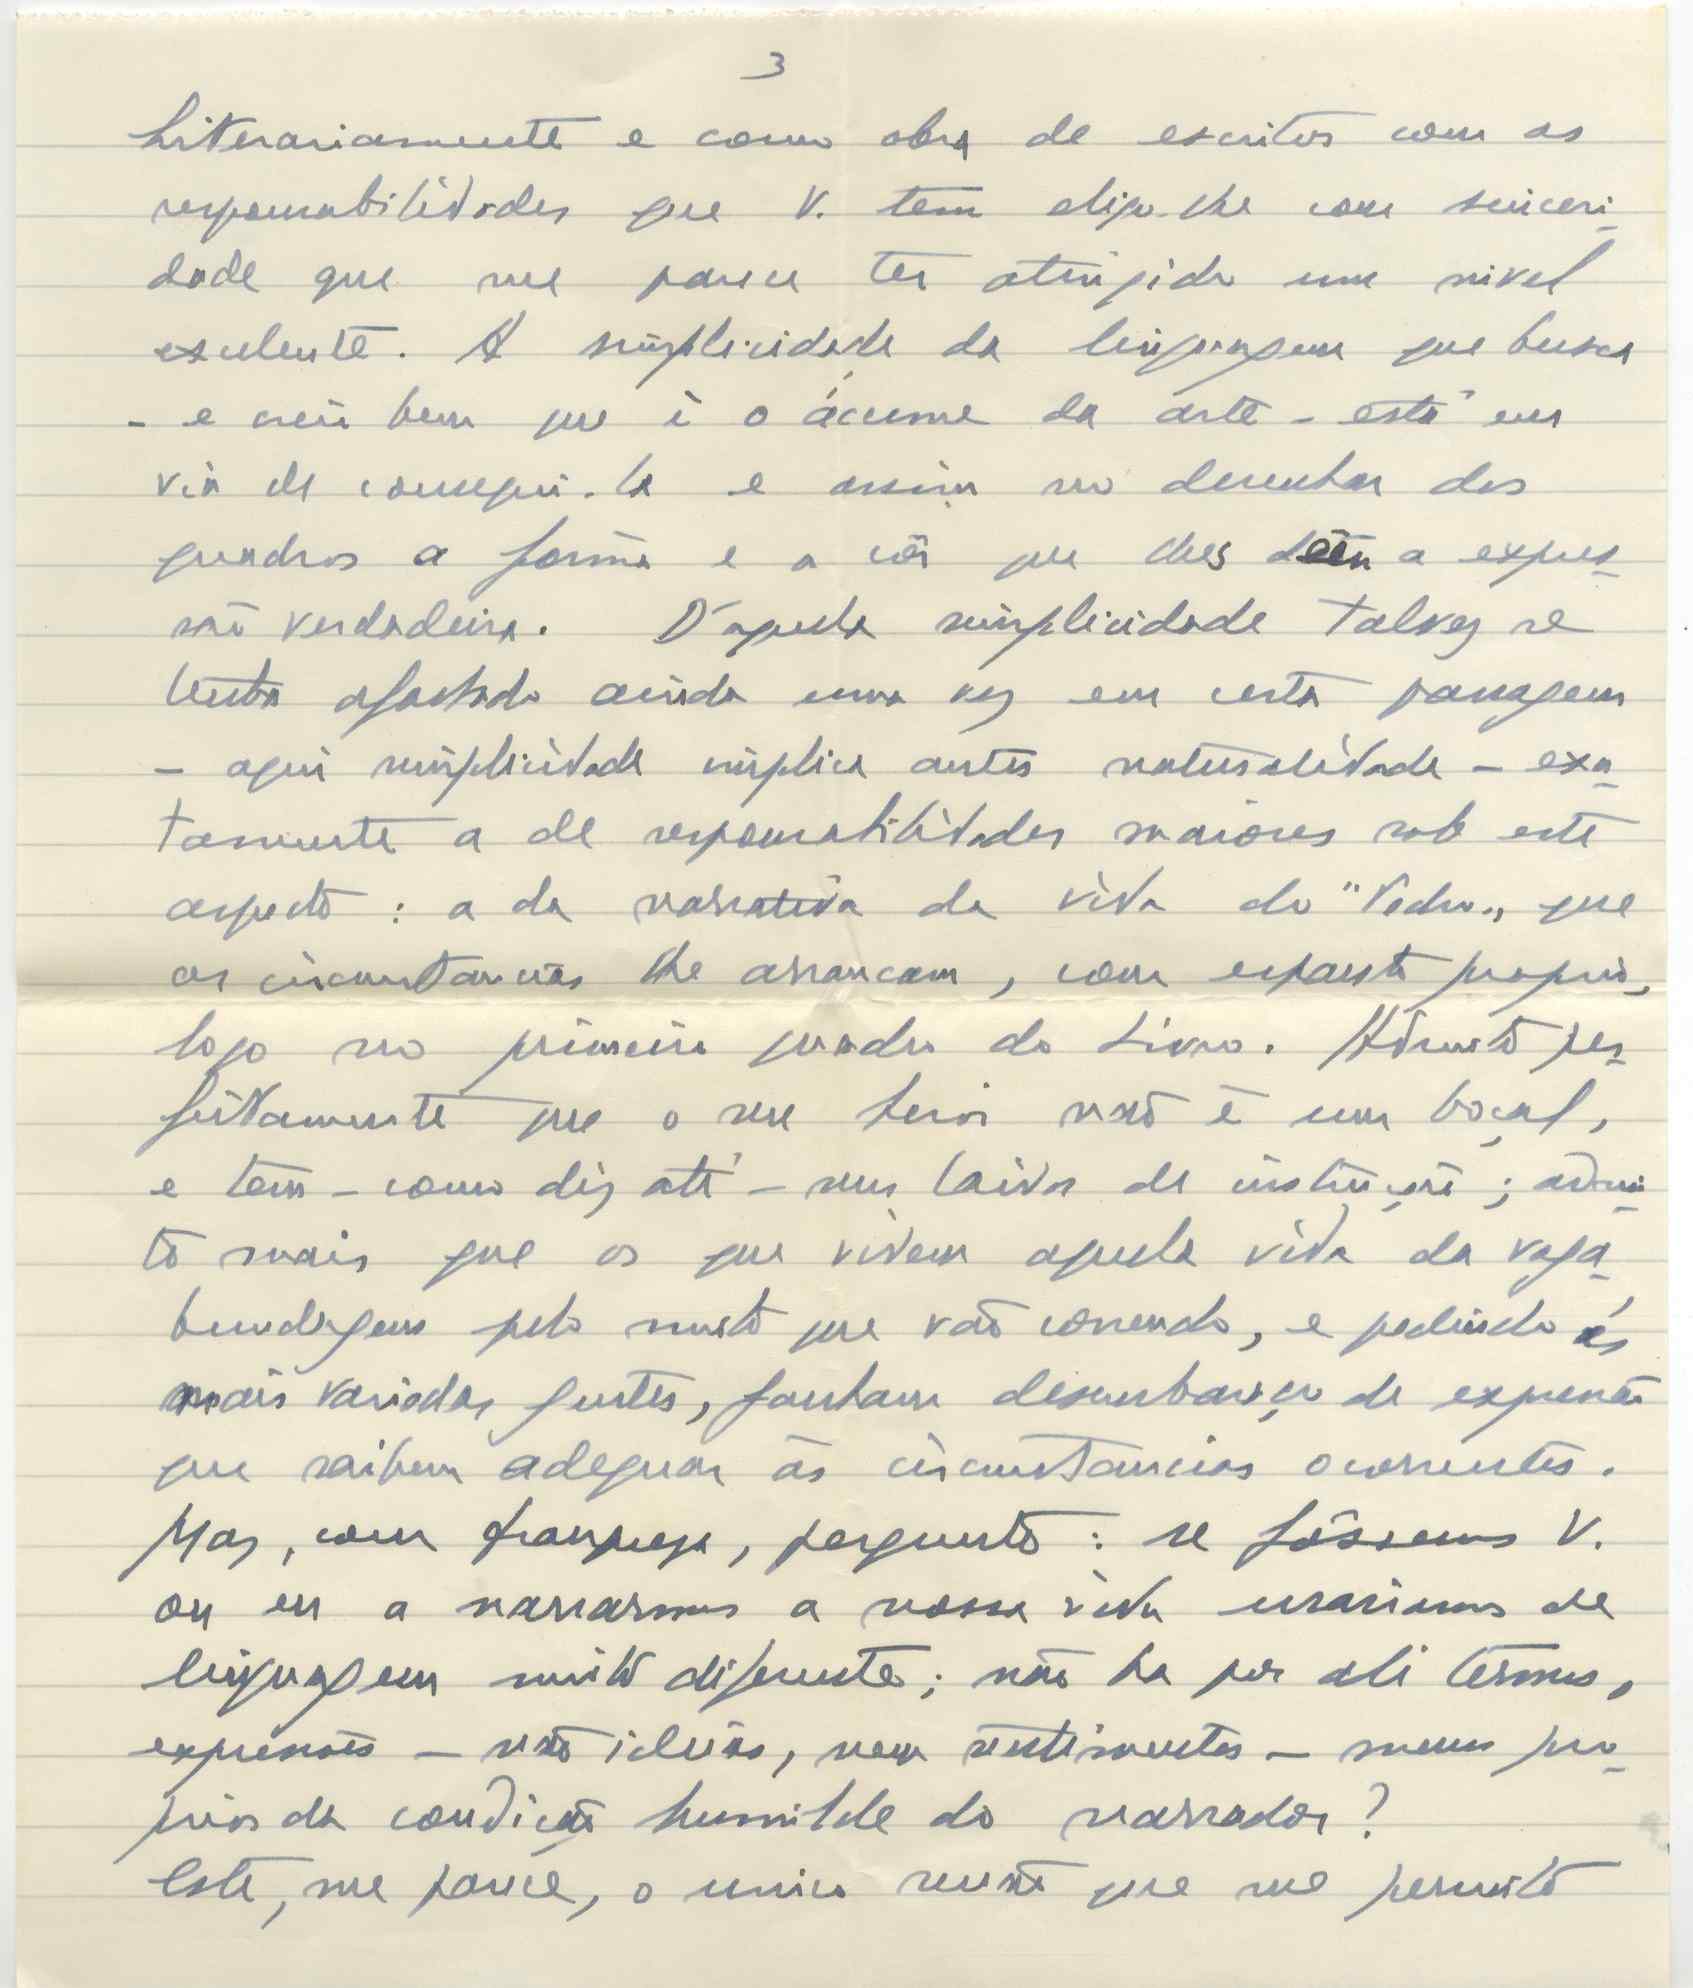 3
Literariamente e como obra de escritor com as
responsabilidades que V. tem digo-lhe com sinceri-
dade que me parece ter atingido um nivel
exelente. A simplicidade da linguagem que busca
- e creio bem que é o ácume da arte - está em
via de consegui-la e assim no desenhar dos
quadros a forma e a côr que lhes dêen a expres-
são verdadeira. D'aquela simplicidade talvez se
tenha afastado ainda uma vez em certa passagem
- aqui simplicidade implica antes naturalidade - exa-
tamente a de responsabilidades maiores sob este
aspecto : a da narrativa da vida do "Pedro„ que
as circunstancias lhe arrancam, com espanto proprio,
logo no primeiro quadro do Livro. Admito per-
feitamente que o seu heroi não é um boçal,
e tem - como diz até - uns laivos de instrução ; admi-
to mais que os que vivem aquela vida da vaga-
bundagem pelo muito que vão correndo, e pedindo ás
mais variadas gentes, ganham desembaraço de expressão
que saibem adequar ás circunstancias ocorrentes.
Mas, com franqueza, pergunto : se fôssemos V.
ou eu a narrarmos a nossa vida usariamos de
linguagem muito diferente ; não ha por ali termos,
expressões - não ideias, nem sentimentos - menos pro-
prios da condição humilde do narrador ?
Este, me parece, o unico senão que me permito